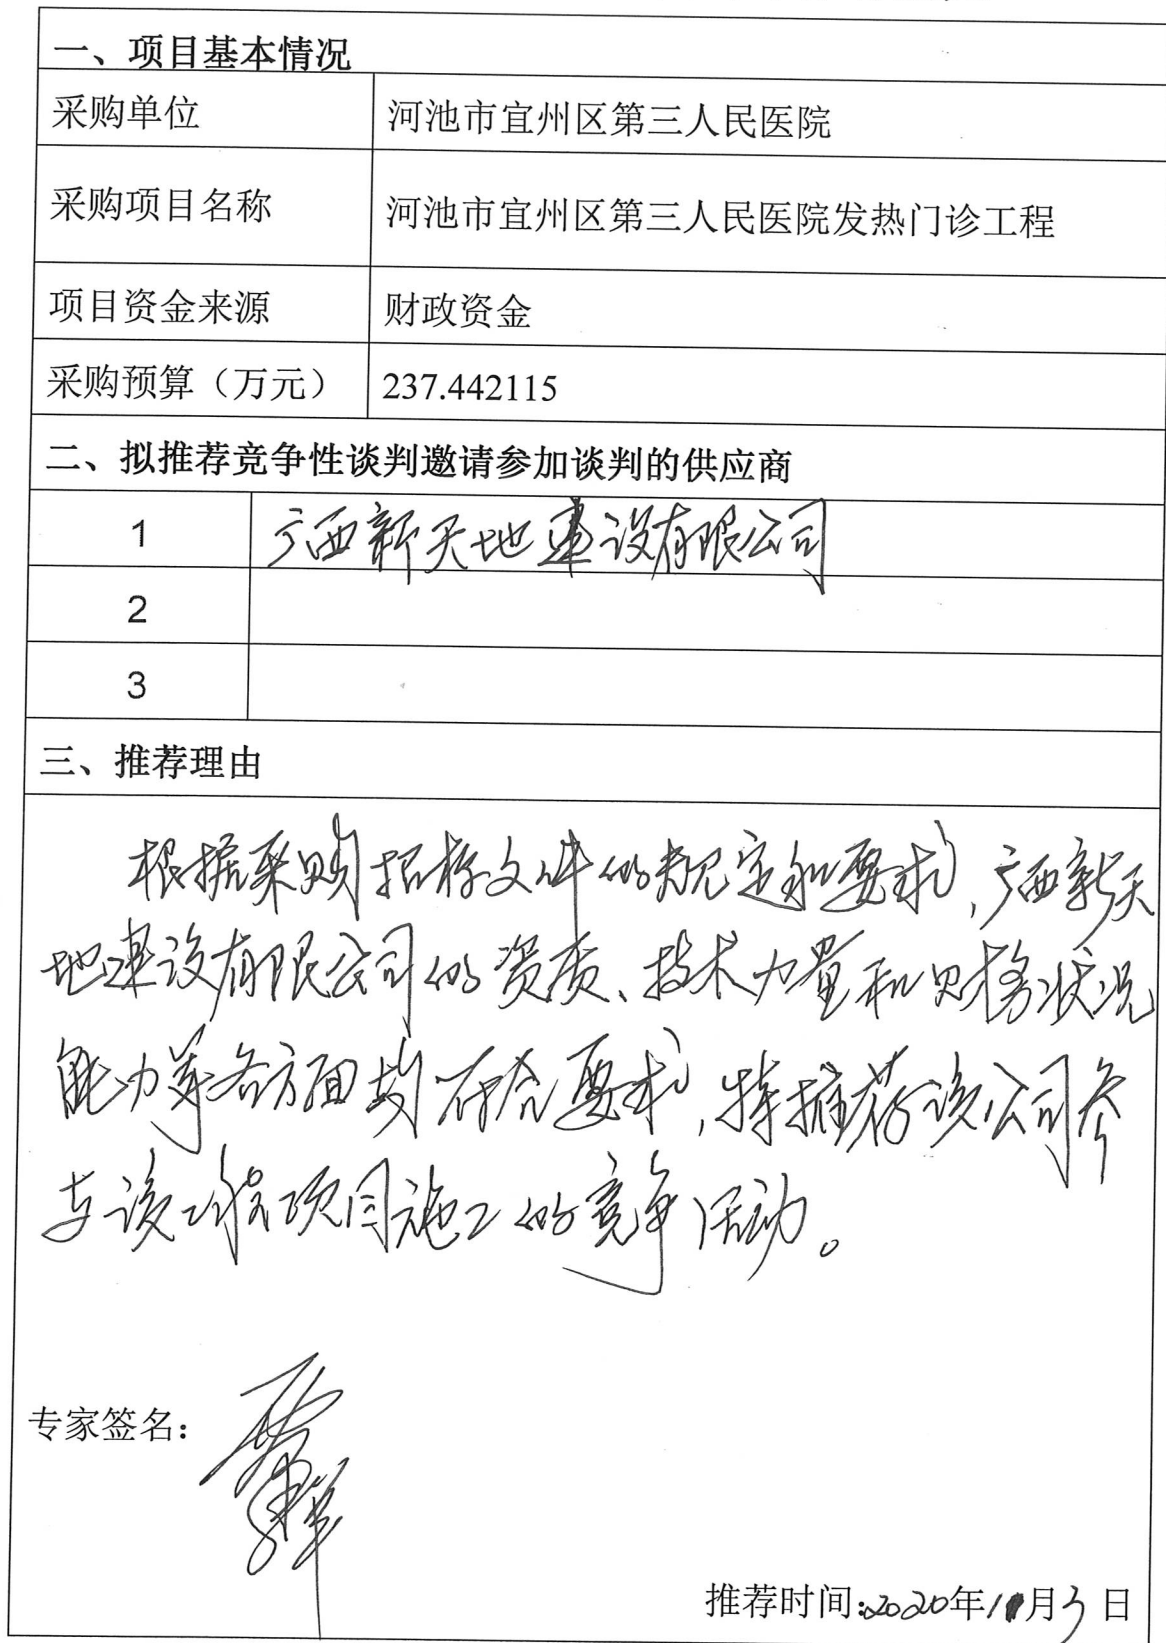 一、项目基本情况
采购单位 河池市宜州区第三人民医院
采购项目名称 河池市宜州区第三人民医院发热门诊工程
项目资金来源 财政资金
采购预算（万元） 237.442115
二、拟推荐竞争性谈判邀请参加谈判的供应商
1 广西新天地建设有限公司
2
3
三、推荐理由
根据采购招标文件的规定和要求，广西新天
地建设有限公司的资质、技术力量和财务状况
能力等各方面均符合要求，特推荐该公司参
与该工程项目施工的竞争活动。
专家签名：
推荐时间:2020年1月3日